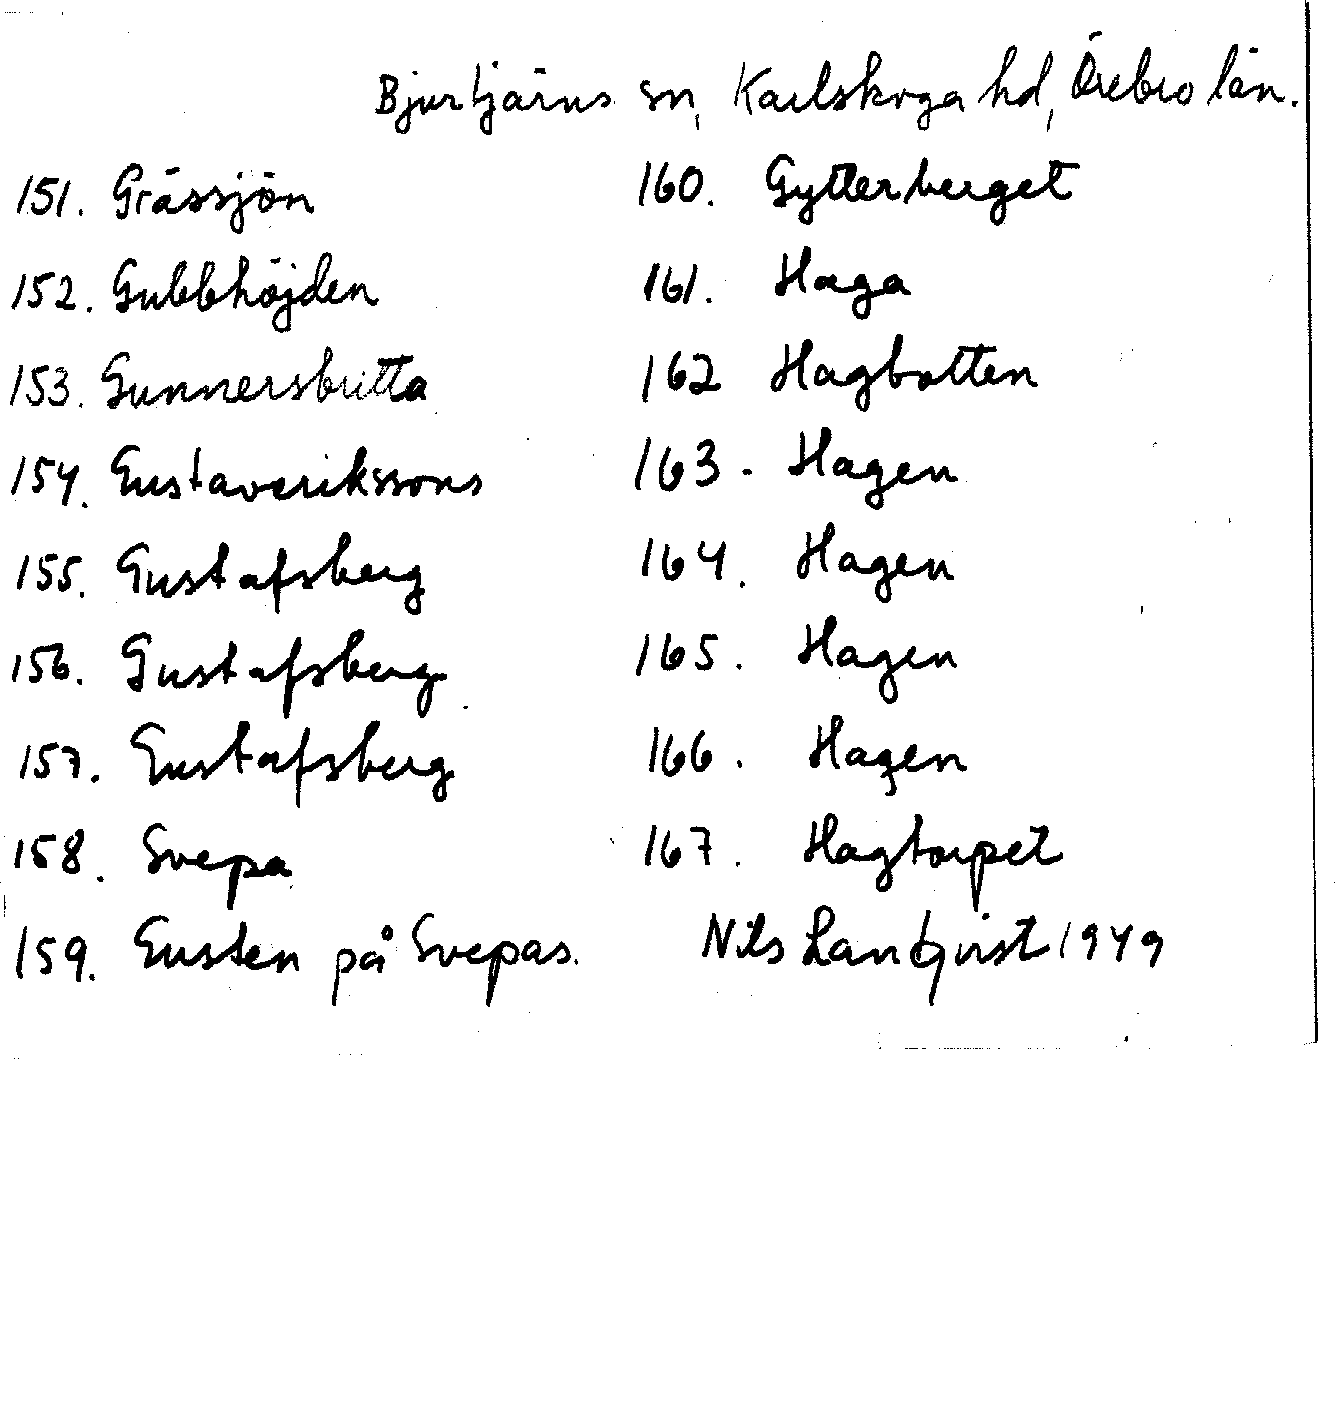 Bjurtjärns sn, Karlskoga hd, Örebro län.
151. Grässjön
152. Gubbhöjden
153. Gunnersbritta
154. Gustaverikssons
155. Gustafsberg
156. Gustafsberg
157. Gustafsberg
158. Svepa
159. Gusten på Svepas.
160. Gytterberget
161. Haga
162 Hagbotten
163. Hagen
164. Hagen
165. Hagen
166. Hagen
167. Hagtorpet
Nils Lanqvist 1949